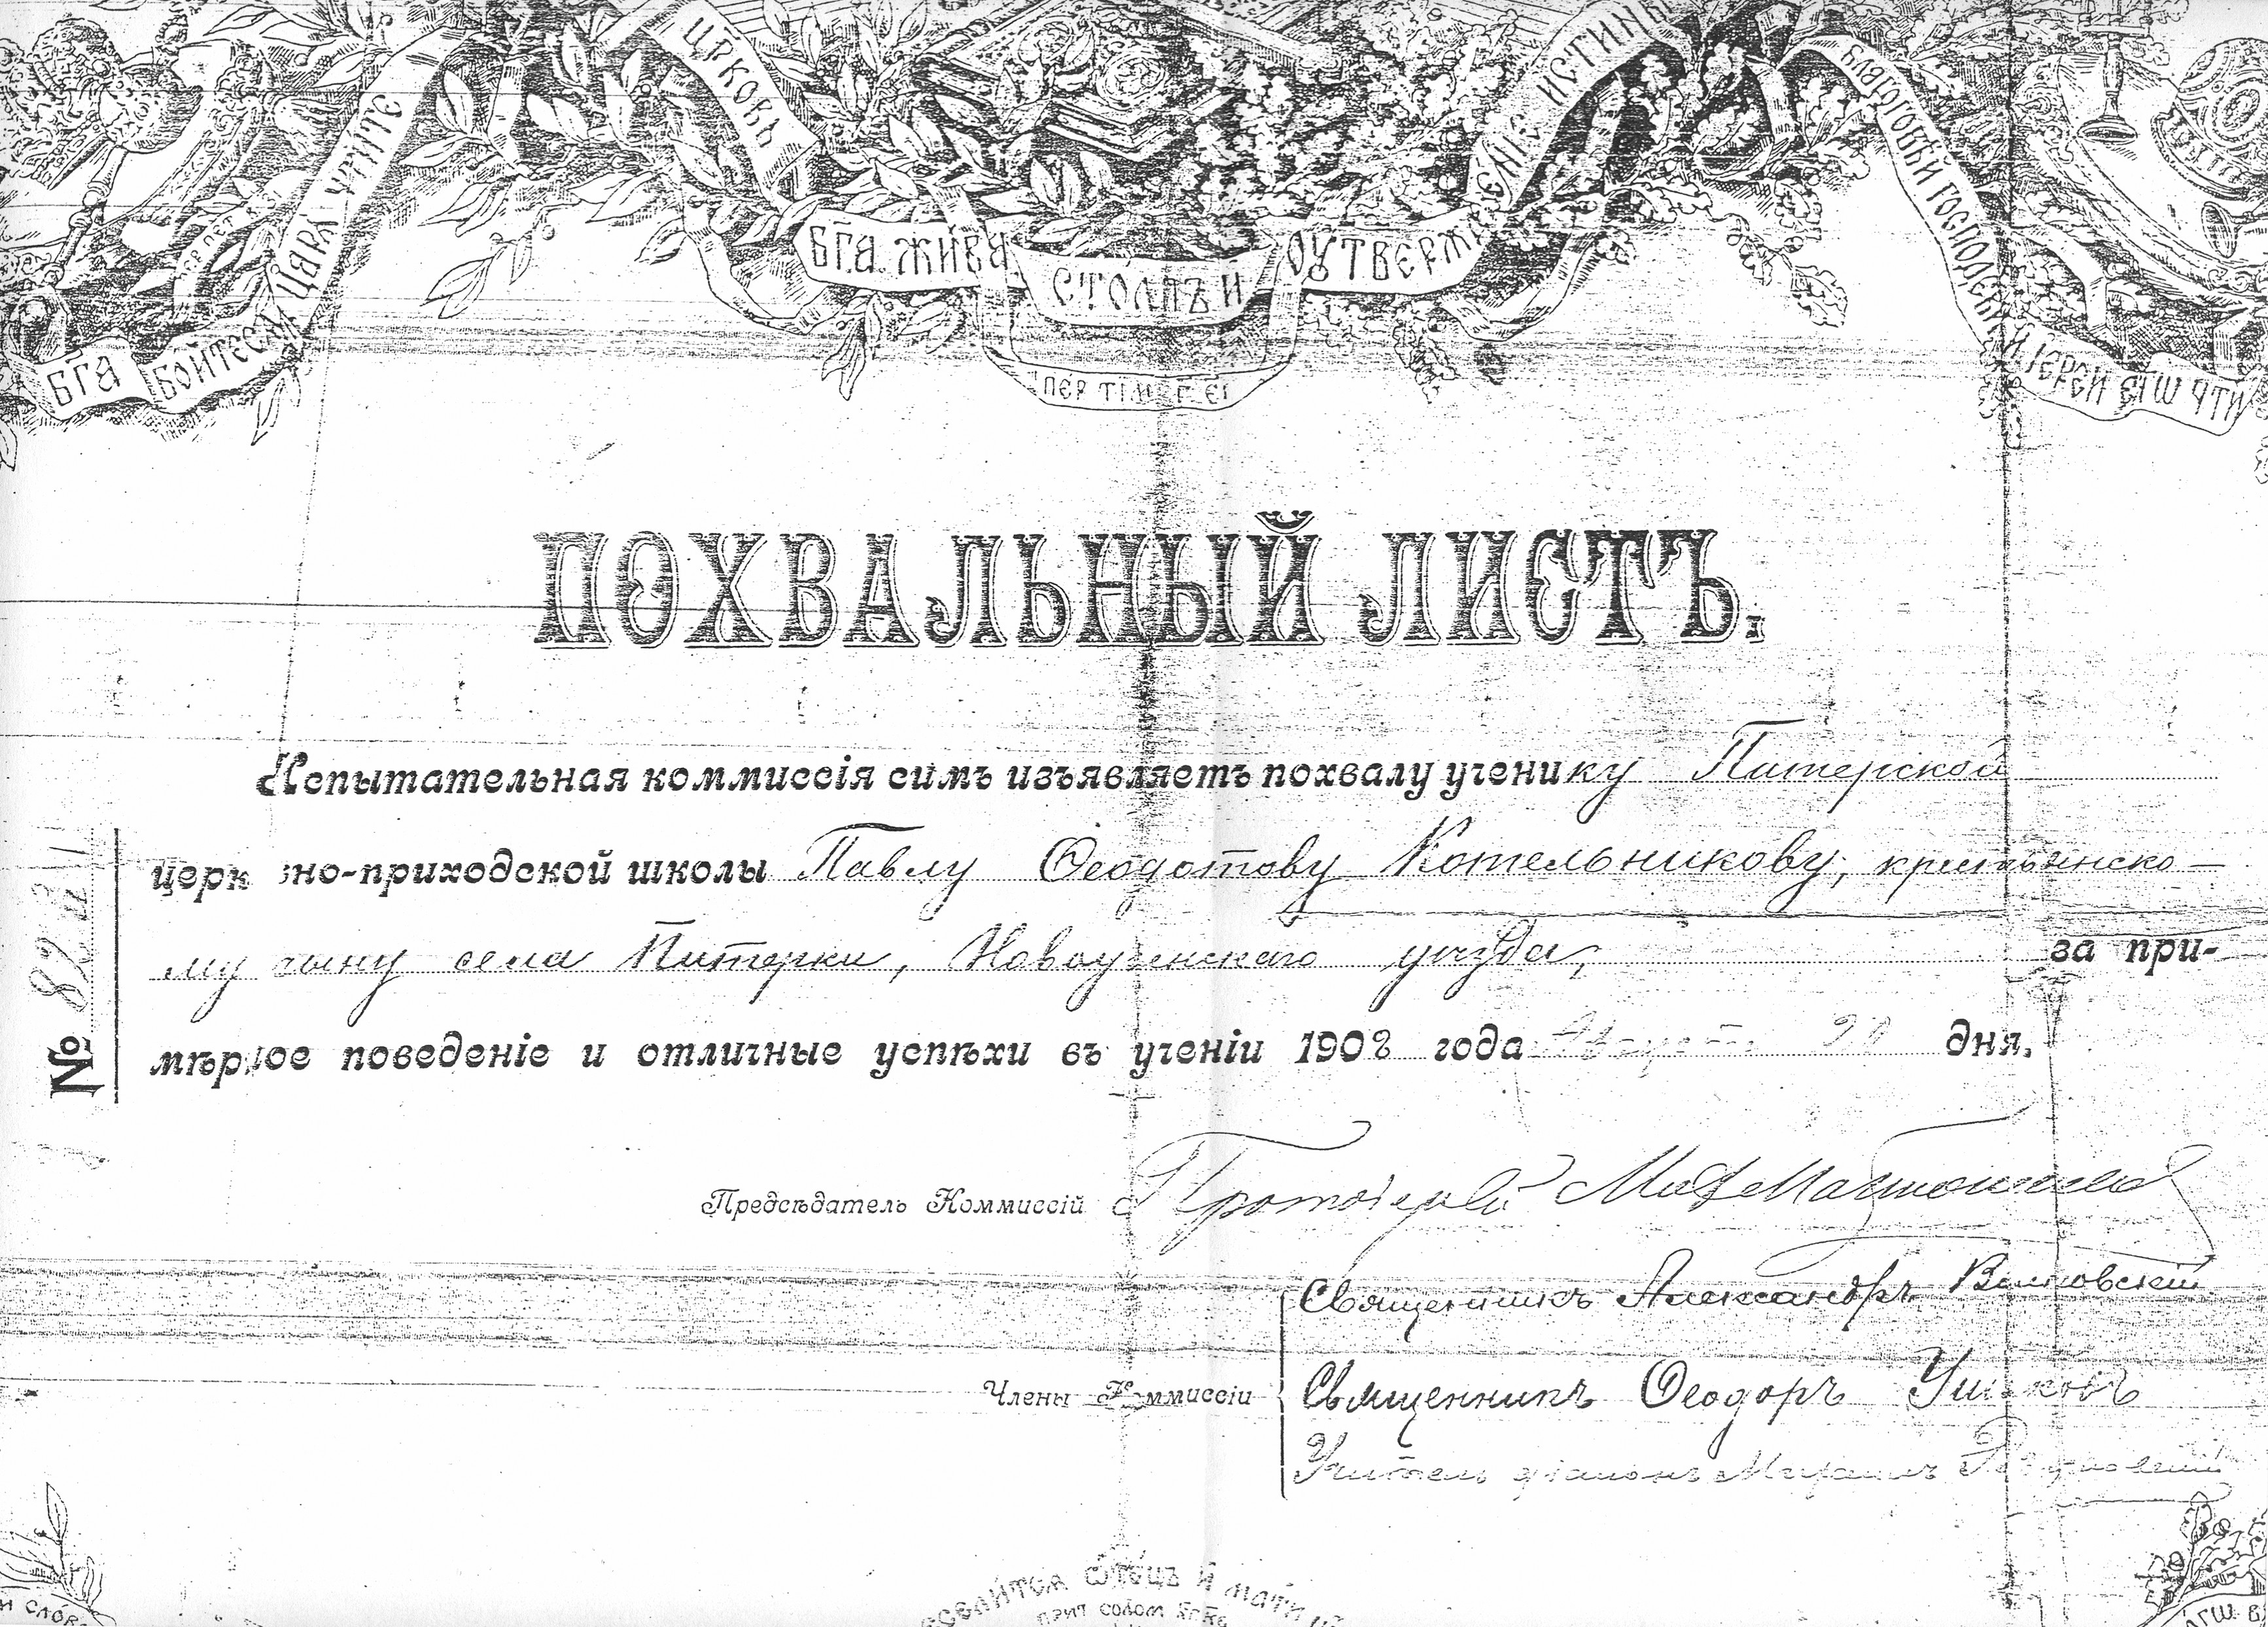 БГА БОЙТЕСѦ ЦАРѦ ЧТИТЕ
ЦРКОВЬ
БГА ЖИВА
СТОЛПЪ И
ОУТВЕРЖДЕНІЕ ИСТИНЫ
ПЕР ТІМ Г ЕІ
БЛАГОГОВѢЙ ГОСПОДЕВИ И ІЕРЕИ ЕГѠ ЧТИ
ПОХВАЛЬНЫЙ ЛИСТЪ.
Испытательная коммиссія симъ изъявляетъ похвалу ученику Питерской
церк но-приходской школы Павлу Ѳеодотову Котельникову, крестьянско-
му сыну села Питерки, Новоузенскаго уѣзда, за при-
мѣрное поведеніе и отличные успѣхи въ ученіи 1902 года Августа дня.
№ 82
Предсѣдатель Коммиссій Протоіерей
Священникъ Александръ
Члены Коммиссіи Священникъ Ѳеодоръ Ушаковъ
Учитель діаконъ Михаилъ
ВЕСЕЛИТСѦ ѠТЕЦЪ И МАТИ
ПРИТ СОЛОМ
И СЛОВ